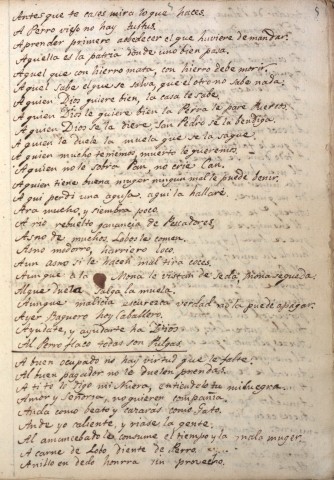 5
Antes que te cases mira lo que haces.
A Perro viejo no hay tustus.
Aprender primero a obedecer el que huviere de mandar.
Aquella es la patria donde uno bien pasa.
Aquel que con hierro mata, con hierro debe morir.
Aquel sabe el que se salva, que el otro no sabe nada.
A quien Dios quiere bien, la casa le sabe.
A quien Dios le quiere bien la Perra le pare Puercos.
A quien Dios se la diere San Pedro se la bendiga.
A quien le duele la muela que se la saque.
A quien mucho tememos, muerto le queremos.
A quien no le sobra Pan no crie Can.
A quien tiene buena muger ningun mal le puede venir.
Aqui perdi una aguja, aqui la hallaré.
Ara mucho, y siembra poco.
A rio rebuelto ganancia de Pescadores.
Asno de muchos, Lobos le comen.
Asno modorro, harriero loco.
Aun asno si le hacen mal tira coces.
Aunque a la Mona le vistan de seda, Mona se queda.
Al que duela, salga la muela.
Aunque malicia escuresca verdad no la puede apagar.
Ayer Baquero hoy Caballero.
Ayudate, y ayudarte ha Dios.
Al Perro flaco todas son Pulgas.
A buen ocupado no hay virtud que le falte.
Al buen pagador no le duelen prendas.
A ti te lo digo mi Nuera, entiendelo tu mi Suegra.
Amor y Señoria, no quieren compania.
Anda como beato y cazaras como Gato.
Ande yo caliente, y riase la gente.
Al amancebado le consume el tiempo y la mala muger.
A carne de Lobo, diente de Perro
Anillo en dedo honrra sin provecho.